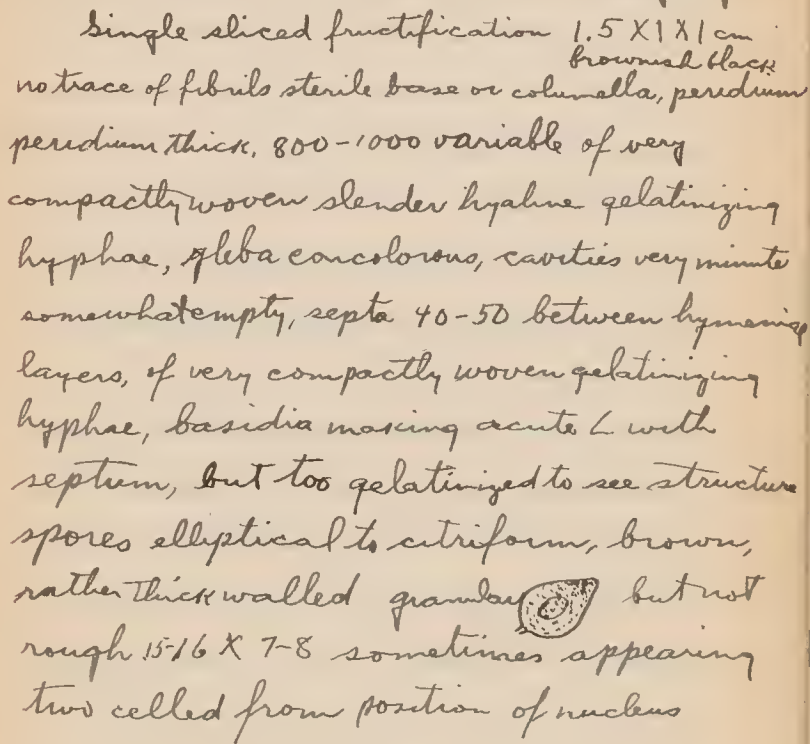 Single sliced fructification 1.5 X 1 X 1 cm
brownish black
no trace of fibrils sterile base or columella, peridium
peridium thick, 800-1000 variable of very
compactly woven slender hyaline gelatinizing
hyphae, gleba concolorous, cavities very minute
somewhat empty, septa 40-50 between hymenial
layers, of very compactly woven gelatinizing
hyphae, basidia making acute ∠ with
septum, but too gelatinized to see structure
spores elliptical to citriform, brown,
rather thick walled granular but not
rough 15-16 X 7-8 sometimes appearing
two celled from position of nucleus